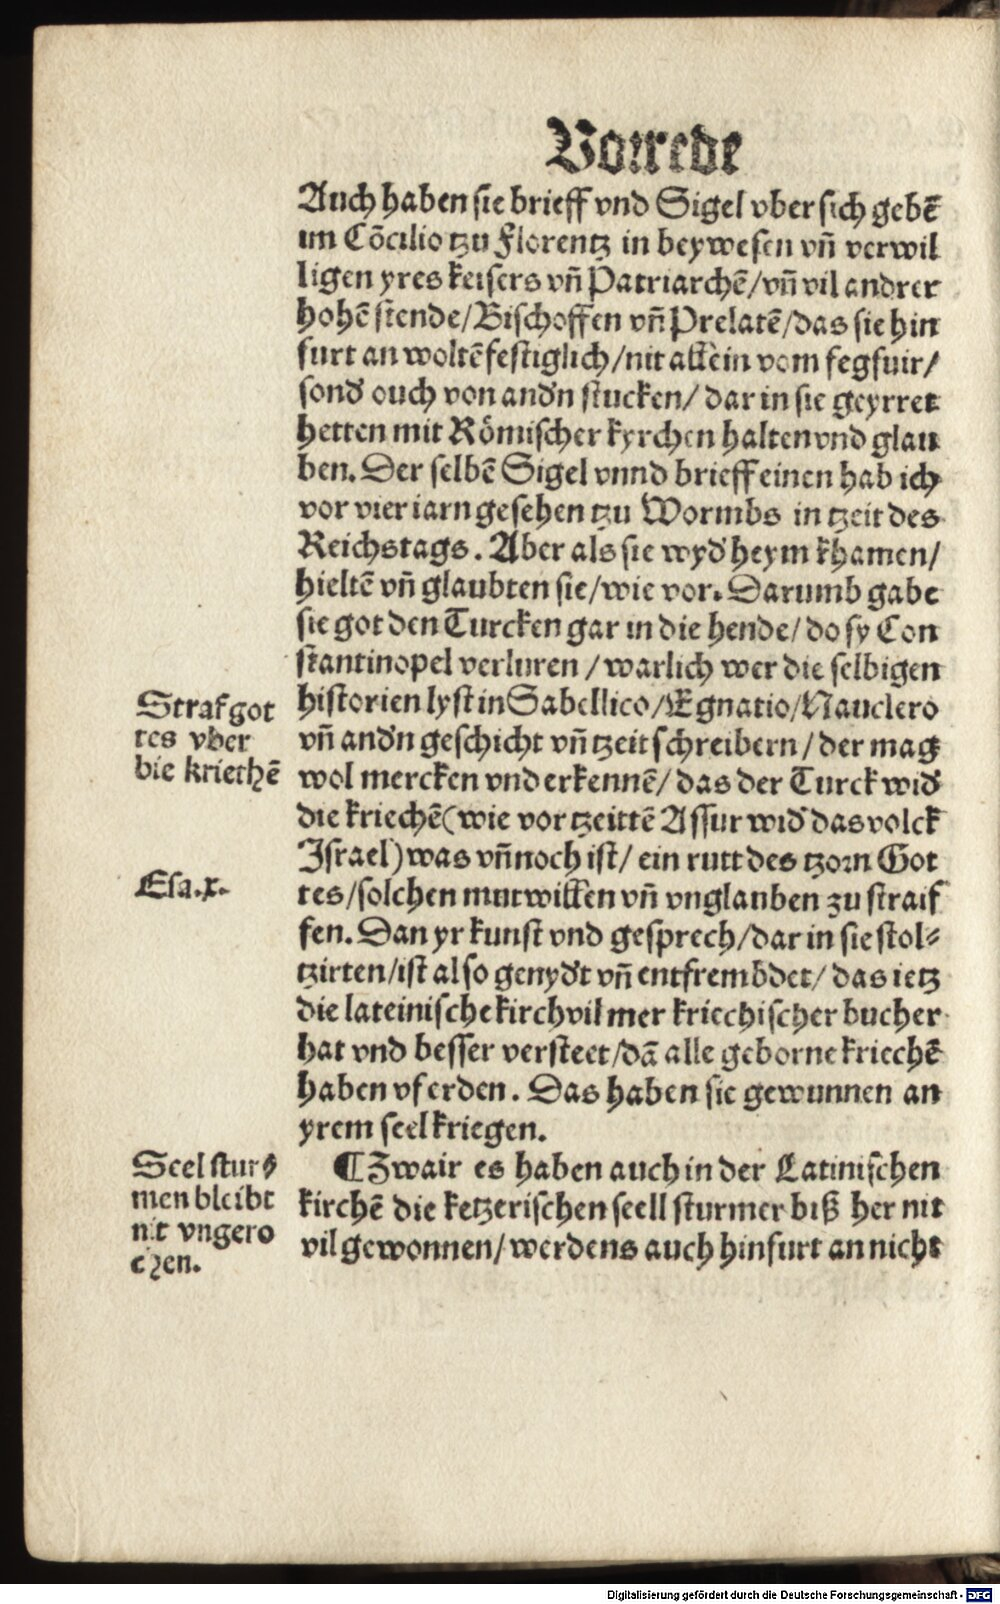 Vorrede
Auch haben sie brieff vnd Sigel vber sich gebē
im Cōcilio tzu Florentz in beywesen vn̄ verwil
ligen yres keisers vn̄ Patriarchē/vn̄ vil andrer
hohē stende/Bischoffen vn̄ Prelatē/das sie hin
furt an woltē festiglich/nit allein vom fegfuir/
sond' ouch von and'n stucken/ dar in sie geyrret
hetten mit Römischer kyrchen halten vnd glau
ben. Der selbē Sigel vnnd brieff einen hab ich
vor vier iarn gesehen tzu Wormbs in tzeit des
Reichstags. Aber als sie wyd' heym khamen/
hieltē vn̄ glaubten sie/wie vor. Darumb gabe
sie got den Turcken gar in die hende/ do sy Con
stantinopel verluren /warlich wer die selbigen
historien lyst in Sabellico/Egnatio/Nauclero
vn̄ and'n geschicht vn̄ tzeit schreibern/der mag
wol mercken vnd erkennē/ das der Turck wid'
die kriechē(wie vor tzeittē Assur wid' das volck
Israel) was vn̄ noch ist/ ein rutt des tzorn Got
tes/solchen mutwillen vn̄ vnglauben zu straif
fen. Dan yr kunst vnd gesprech/dar in sie stol⸗
tzirten/ist also genyd't vn̄ entfrembdet/ das ietz
die lateinische kirch vil mer kriechischer bucher
hat vnd besser versteet/dā alle geborne kriechē
haben vf erden. Das haben sie gewunnen an
yrem seel kriegen.
¶ Zwair es haben auch in der Latinischen
kirchē die ketzerischen seell sturmer biß her nit
vil gewonnen/ werdens auch hinfurt an nicht
Straf got
tes vber
die kriechē
Esa.x.
Seel stur⸗
men bleibt
nit vngero
chen.
Digitalisierung gefördert durch die Deutsche Forschungsgemeinschaft - DFG